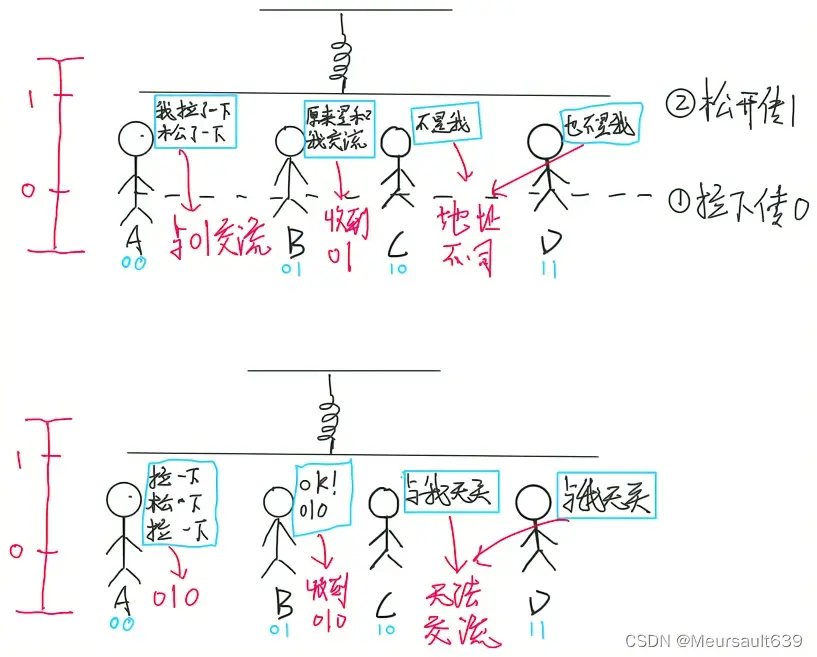 1
0
我拉了一下
松了一下
原来是和
我交流
不是我
也不是我
②松开传1
①拉下传0
A
00
与01交流
B
01
收到
01
C
10
地址
不同
D
11
1
0
拉一下
松一下
拉一下
OK!
010
与我无关
与我无关
A
00
010
B
01
收到
010
C
10
无法
交流
D
11
CSDN @Meursault639